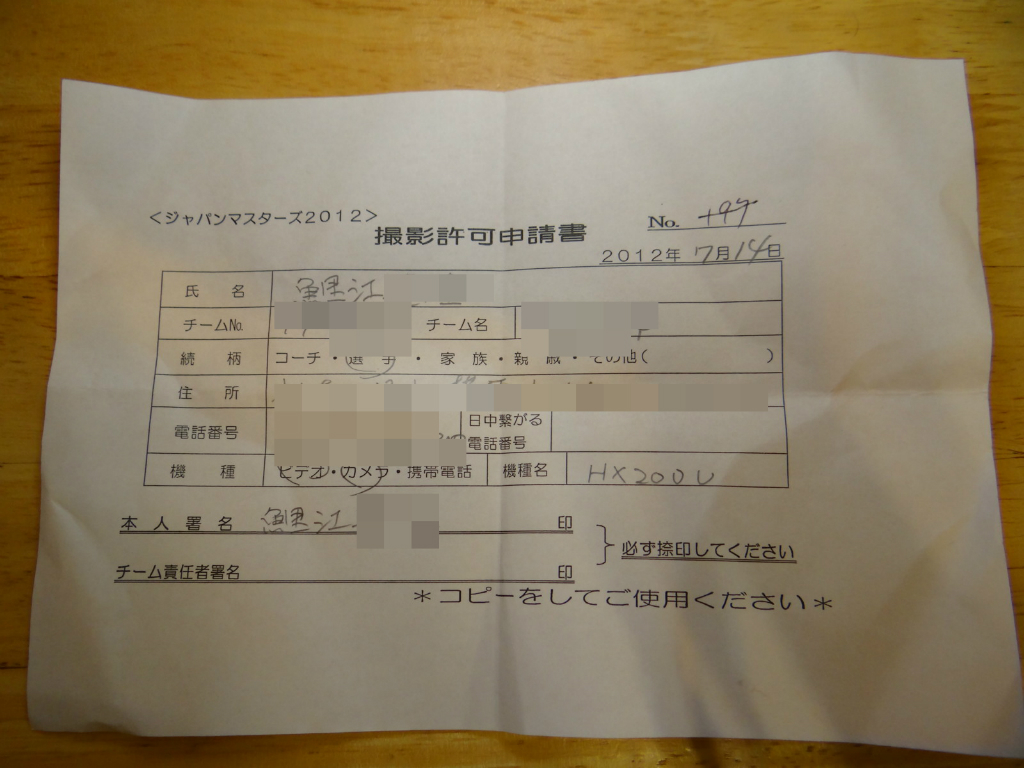 <ジャパンマスターズ2012>
No. 197
撮影許可申請書
2012年 7月14日
氏 名 鯉江
チームNo. チーム名
続 柄 コーチ・選手・家族・親戚・その他( )
住 所
電話番号 日中繋がる電話番号
機 種 ビデオ・カメラ・携帯電話 機種名 HX200V
本人署名 鯉江 印
必ず捺印してください
チーム責任者署名 印
*コピーをしてご使用ください*